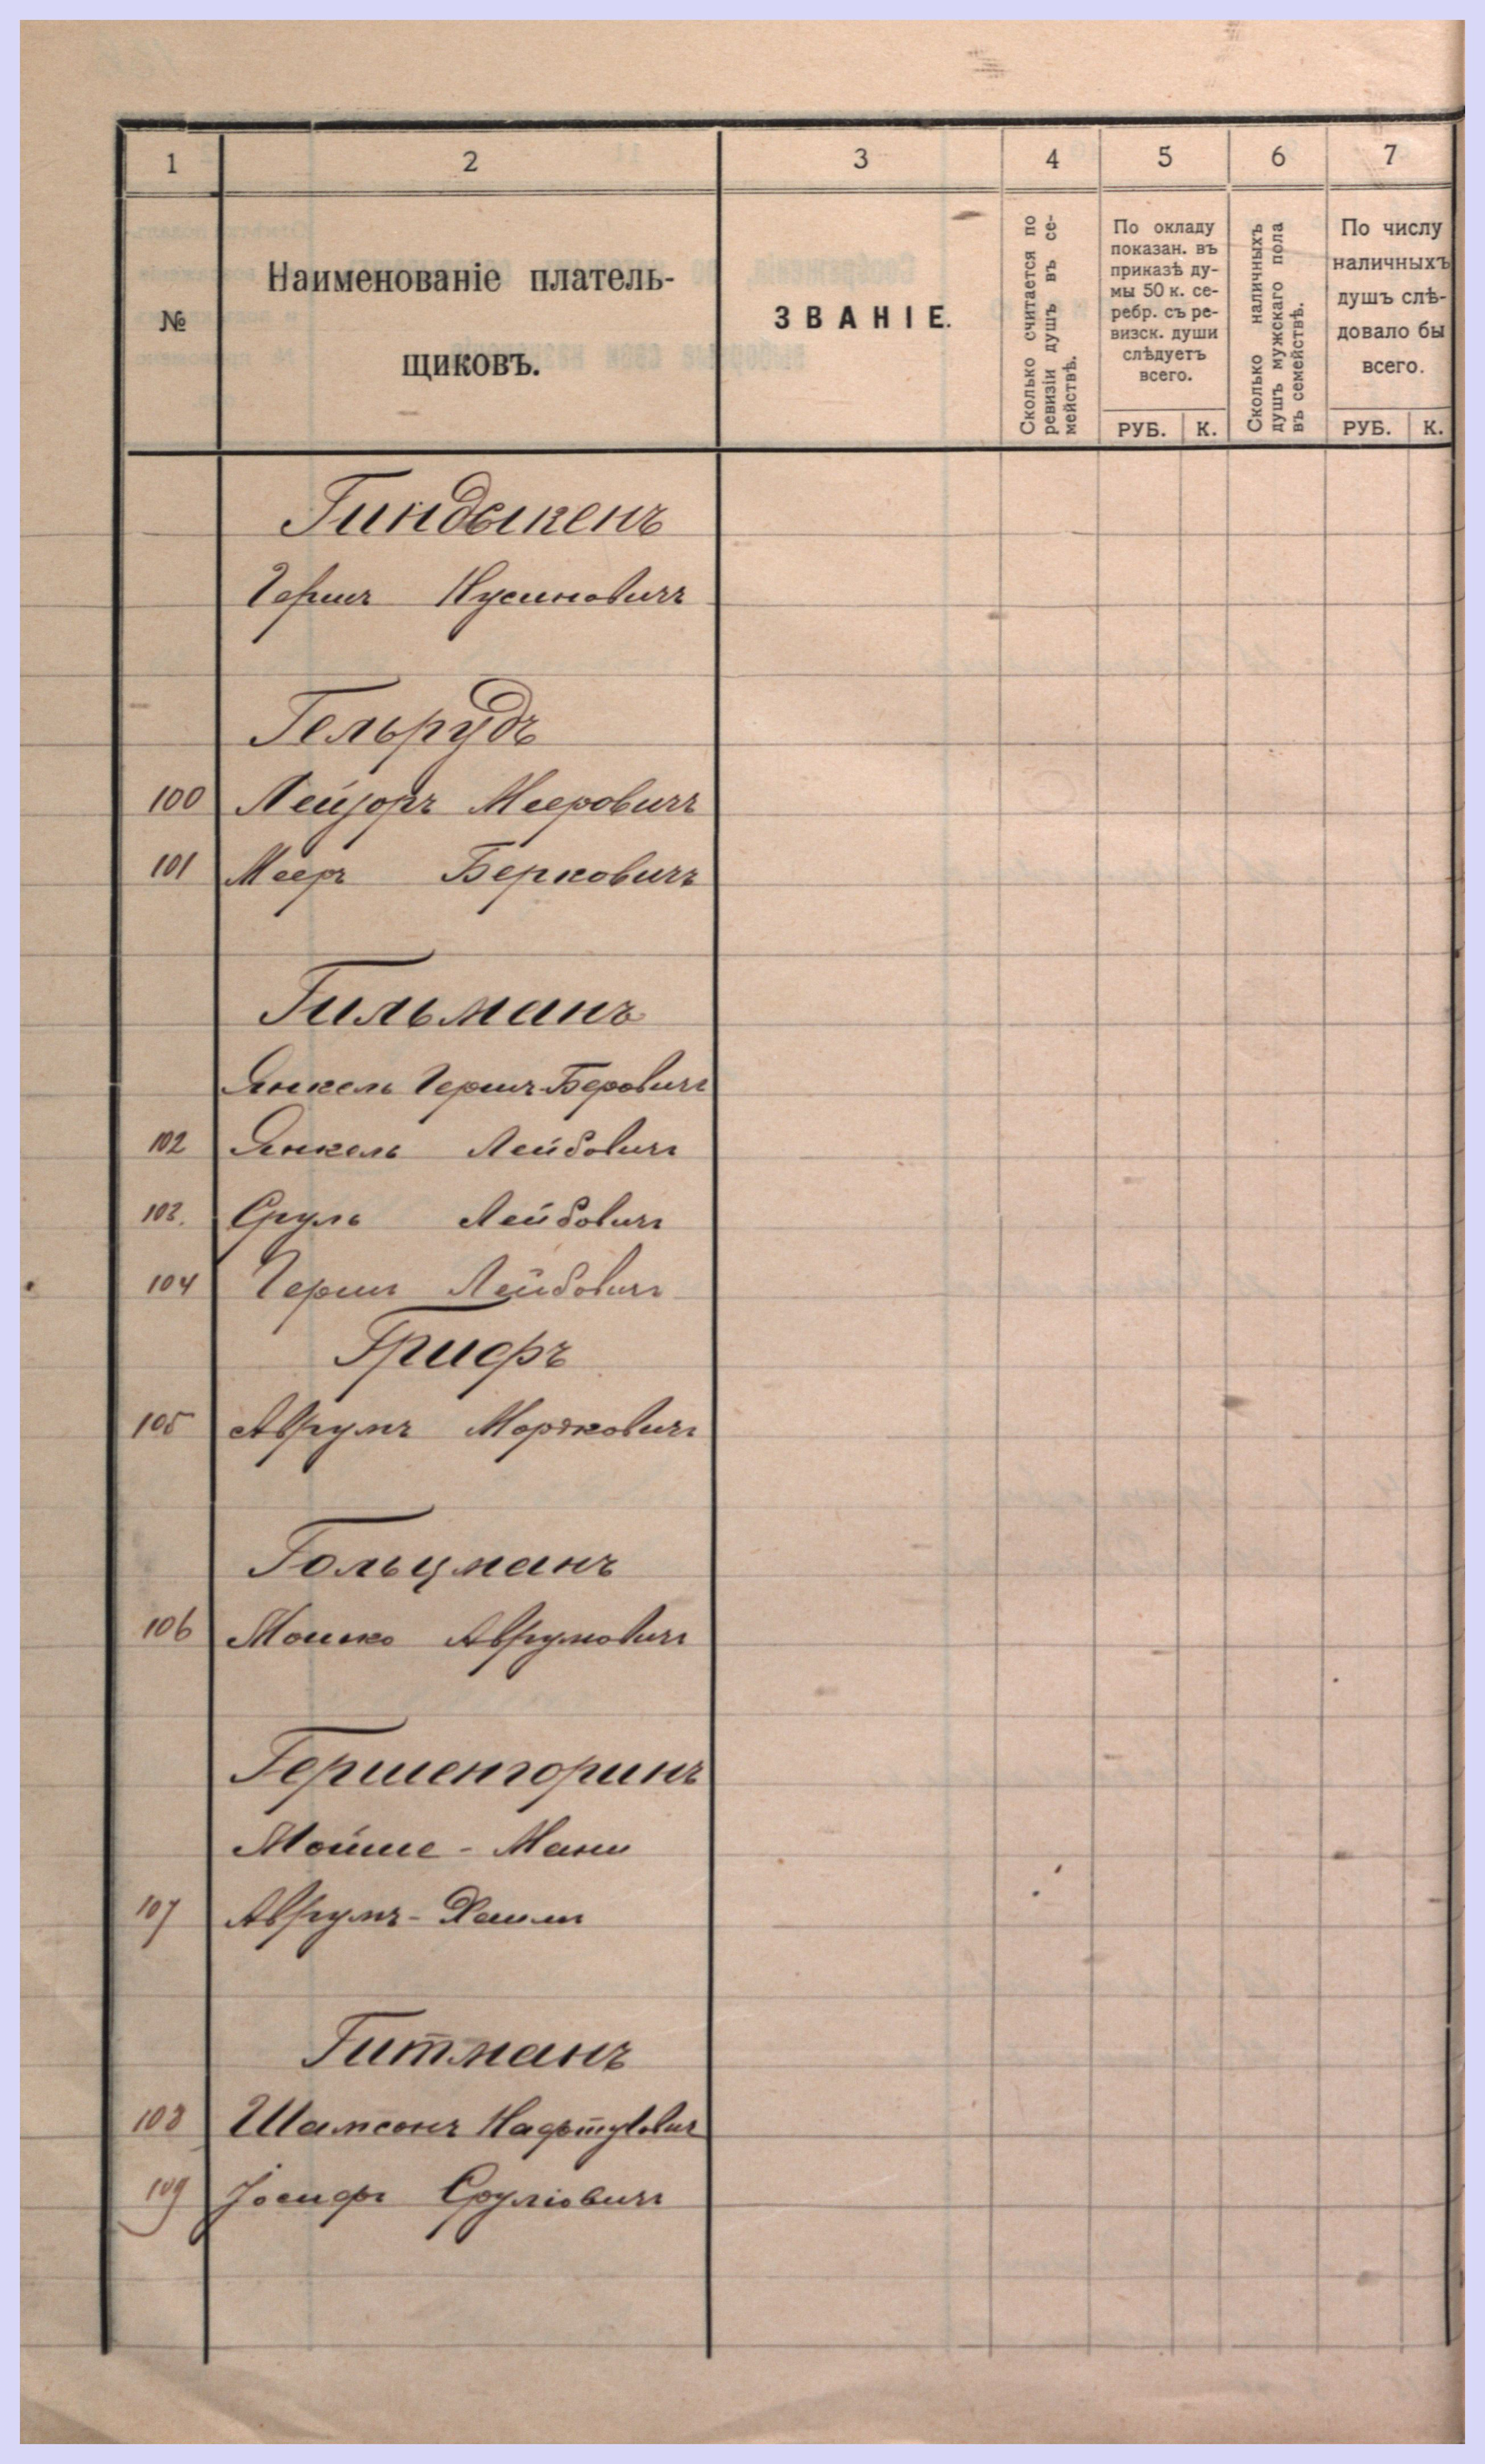 1 2 3 4 5 6 7
№
Наименованіе платель-
щиковъ.
ЗВАНІЕ.
Сколько считается по
ревизіи душъ въ се-
мействѣ.
По окладу
показан. въ
приказѣ ду-
мы 50 к. се-
ребр. съ ре-
визск. души
слѣдуетъ
всего.
РУБ. К.
Сколько наличныхъ
душъ мужскаго пола
въ семействѣ.
По числу
наличныхъ
душъ слѣ-
довало бы
всего.
РУБ. К.
Гершъ Нусиновичъ
Гельрудъ
100 Лейзоръ Мееровичъ
101 Мееръ Берковичъ
Гильманъ
Янкель Гершъ-Беровичъ
102 Янкель Лейбовичъ
103. Сруль Лейбовичъ
104 Гершъ Лейбовичъ
Гриеръ
105 Аврумъ Мордковичъ
Гольцманъ
106 Мошко Аврумовичъ
Гершенгоринъ
Мойше - Мани
107 Аврумъ -
Гитманъ
108 Шамсонъ Нафтуловичъ
109 Іосифъ Сруліовичъ